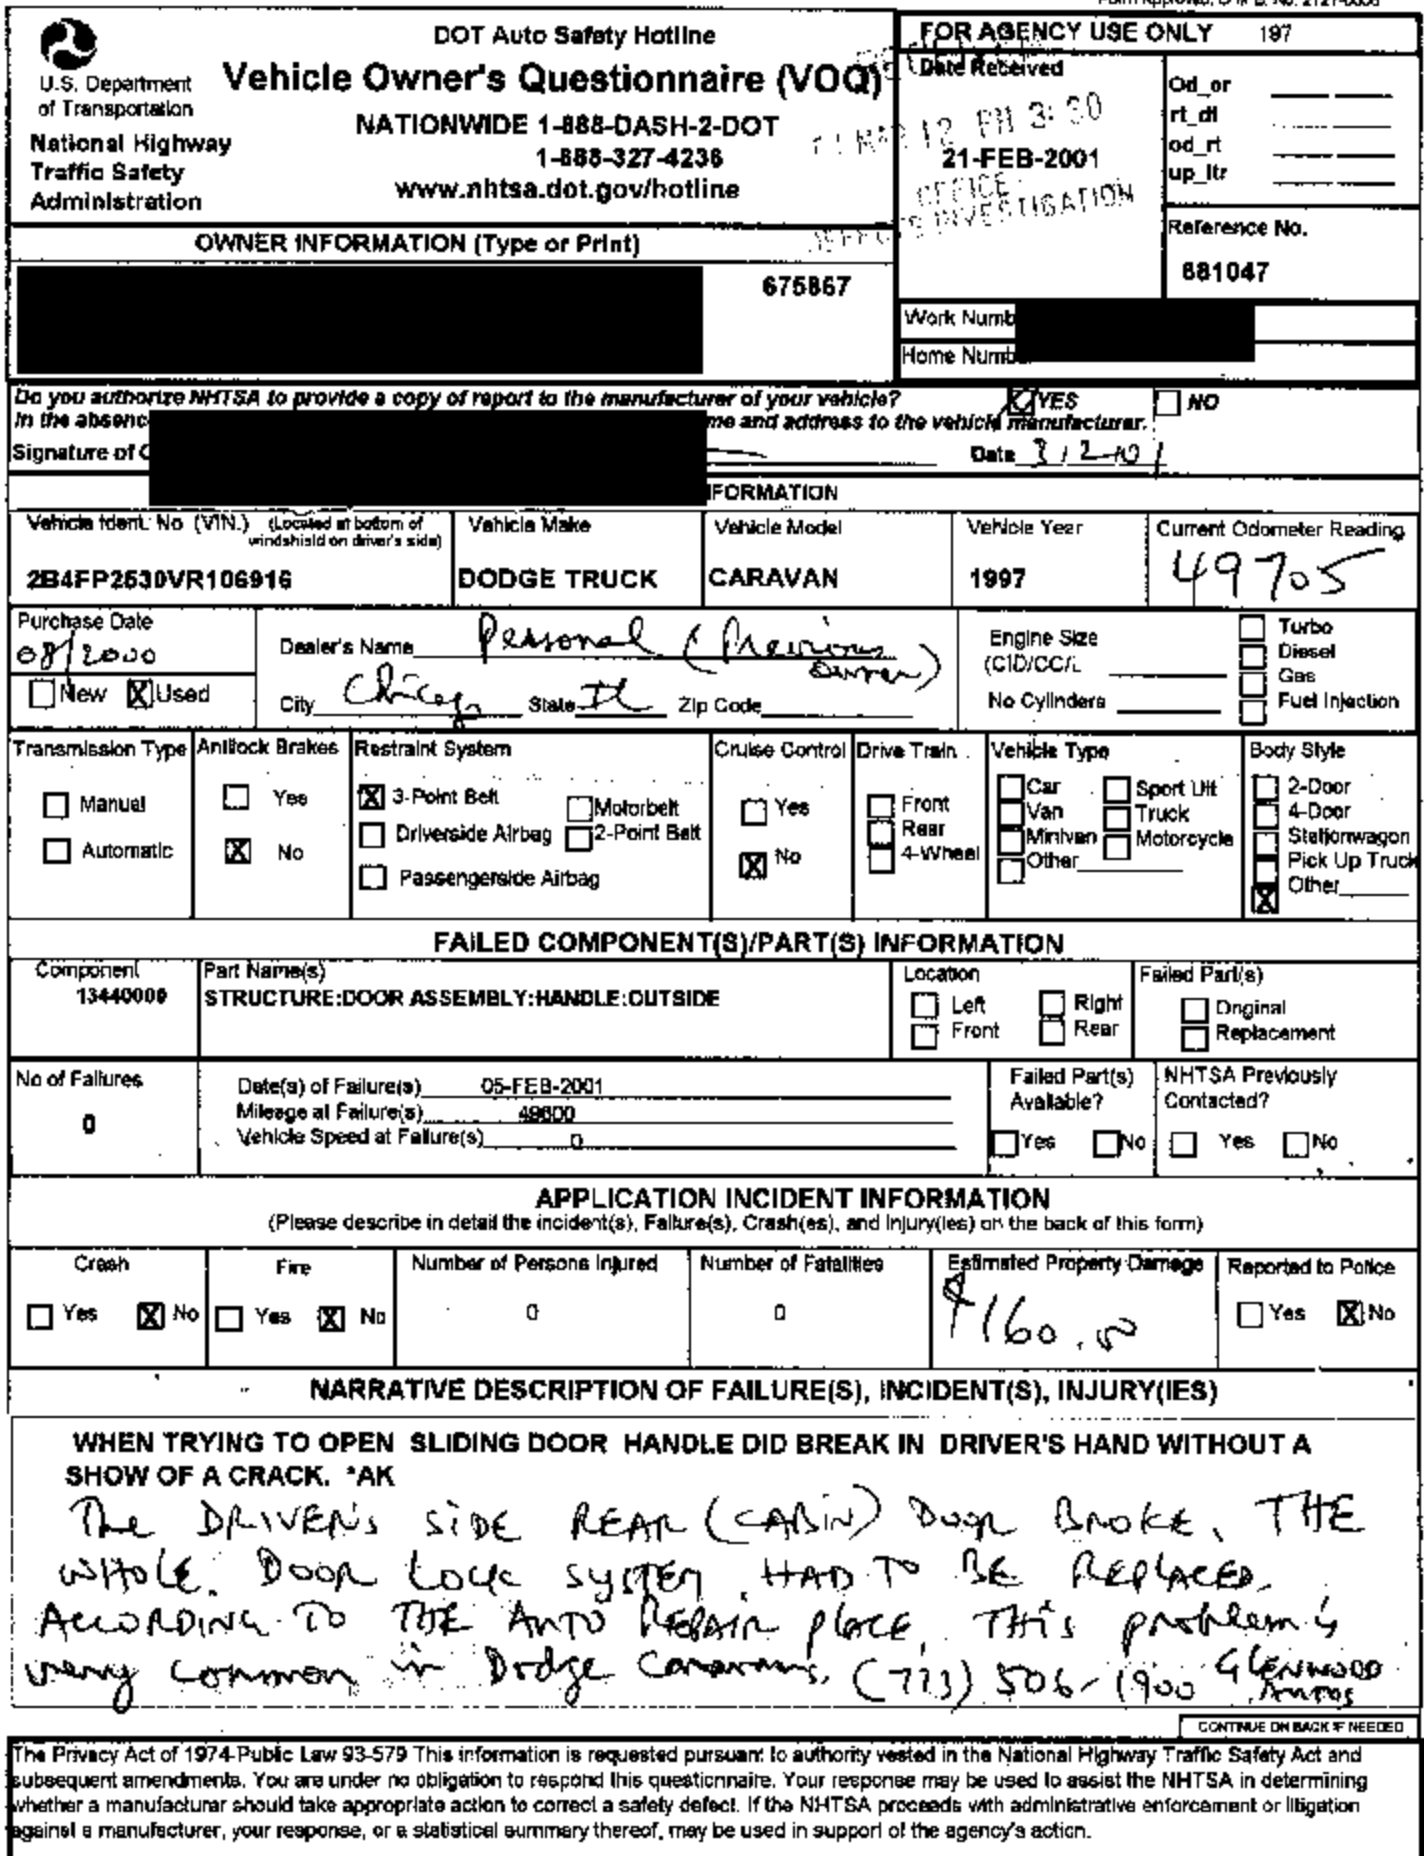 DOT Auto Safety Hotline
Vehicle Owner's Questionnaire (VOQ)
NATIONWIDE 1-888-DASH-2-DOT
1-888-327-4236
www.nhtsa.dot.gov/hotline
U.S. Department
of Transportation
National Highway
Traffic Safety
Administration
FOR AGENCY USE ONLY 197
Date Received
12 PM 3:30
21-FEB-2001
OFFICE
DEFECTS INVESTIGATION
Od_or
rt_dl
od_rt
up_ltr
Reference No.
881047
OWNER INFORMATION (Type or Print)
675867
Work Numb
Home Numb
Do you authorize NHTSA to provide a copy of report to the manufacturer of your vehicle? YES NO
In the absenc me and address to the vehicle manufacturer.
Signature of Date 3/2/01
FORMATION
Vehicle Ident. No. (VIN.) (Located at bottom of
windshield on driver's side)
2B4FP2530VR106916
Vehicle Make
DODGE TRUCK
Vehicle Model
CARAVAN
Vehicle Year
1997
Current Odometer Reading
49705
Purchase Date
08/2000
New X Used
Dealer's Name Personal (Previous
owner)
City State IL Zip Code
Engine Size
(CID/CC/L
No Cylinders
Turbo
Diesel
Gas
Fuel Injection
Transmission Type
Manual
Automatic
Antilock Brakes
Yes
X No
Restraint System
X 3-Point Belt Motorbelt
Driverside Airbag 2-Point Belt
Passengerside Airbag
Cruise Control
Yes
X No
Drive Train
Front
Rear
4-Wheel
Vehicle Type
Car Sport Utl
Van Truck
Minivan Motorcycle
Other
Body Style
2-Door
4-Door
Stationwagon
Pick Up Truck
X Other
FAILED COMPONENT(S)/PART(S) INFORMATION
Component
13440000
Part Name(s)
STRUCTURE:DOOR ASSEMBLY:HANDLE:OUTSIDE
Location
Left Right
Front Rear
Failed Part(s)
Original
Replacement
No of Failures
0
Date(s) of Failure(s) 05-FEB-2001
Mileage at Failure(s) 49600
Vehicle Speed at Failure(s) 0
Failed Part(s)
Available?
Yes No
NHTSA Previously
Contacted?
Yes No
APPLICATION INCIDENT INFORMATION
(Please describe in detail the incident(s), Failure(s), Crash(es), and Injury(ies) on the back of this form)
Crash
Yes X No
Fire
Yes X No
Number of Persons Injured
0
Number of Fatalities
0
Estimated Property Damage
$160.00
Reported to Police
Yes X No
NARRATIVE DESCRIPTION OF FAILURE(S), INCIDENT(S), INJURY(IES)
WHEN TRYING TO OPEN SLIDING DOOR HANDLE DID BREAK IN DRIVER'S HAND WITHOUT A
SHOW OF A CRACK. *AK
The DRIVER'S SIDE REAR (CABIN) DOOR BROKE. THE
WHOLE DOOR LOCK SYSTEM HAD TO BE REPLACED.
ACCORDING TO THE AUTO REPAIR PLACE, THIS problem is
very common in Dodge Caravans. (773) 506-1900 GLENWOOD
AUTOS
CONTINUE ON BACK IF NEEDED
The Privacy Act of 1974-Public Law 93-579 This information is requested pursuant to authority vested in the National Highway Traffic Safety Act and
subsequent amendments. You are under no obligation to respond this questionnaire. Your response may be used to assist the NHTSA in determining
whether a manufacturer should take appropriate action to correct a safety defect. If the NHTSA proceeds with administrative enforcement or litigation
against a manufacturer, your response, or a statistical summary thereof, may be used in support of the agency's action.